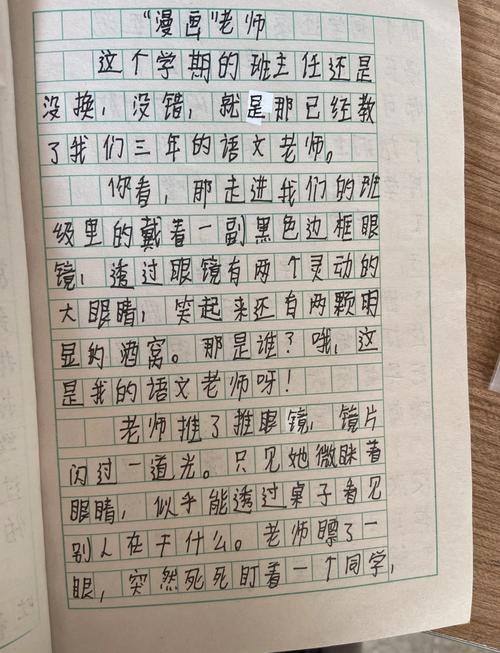 “漫画”老师
这个学期的班主任还是
没换，没错，就是那已经教
了我们三年的语文老师。
你看，那走进我们的班
级里的戴着一副黑色边框眼
镜，透过眼镜有两个灵动的
大眼睛，笑起来还有两颗明
显的酒窝。那是谁？哦，这
是我的语文老师呀！
老师推了推眼镜，镜片
闪过一道光。只见她微眯着
眼睛，似乎能透过桌子看见
别人在干什么。老师瞟了一
眼，突然死死盯着一个同学，